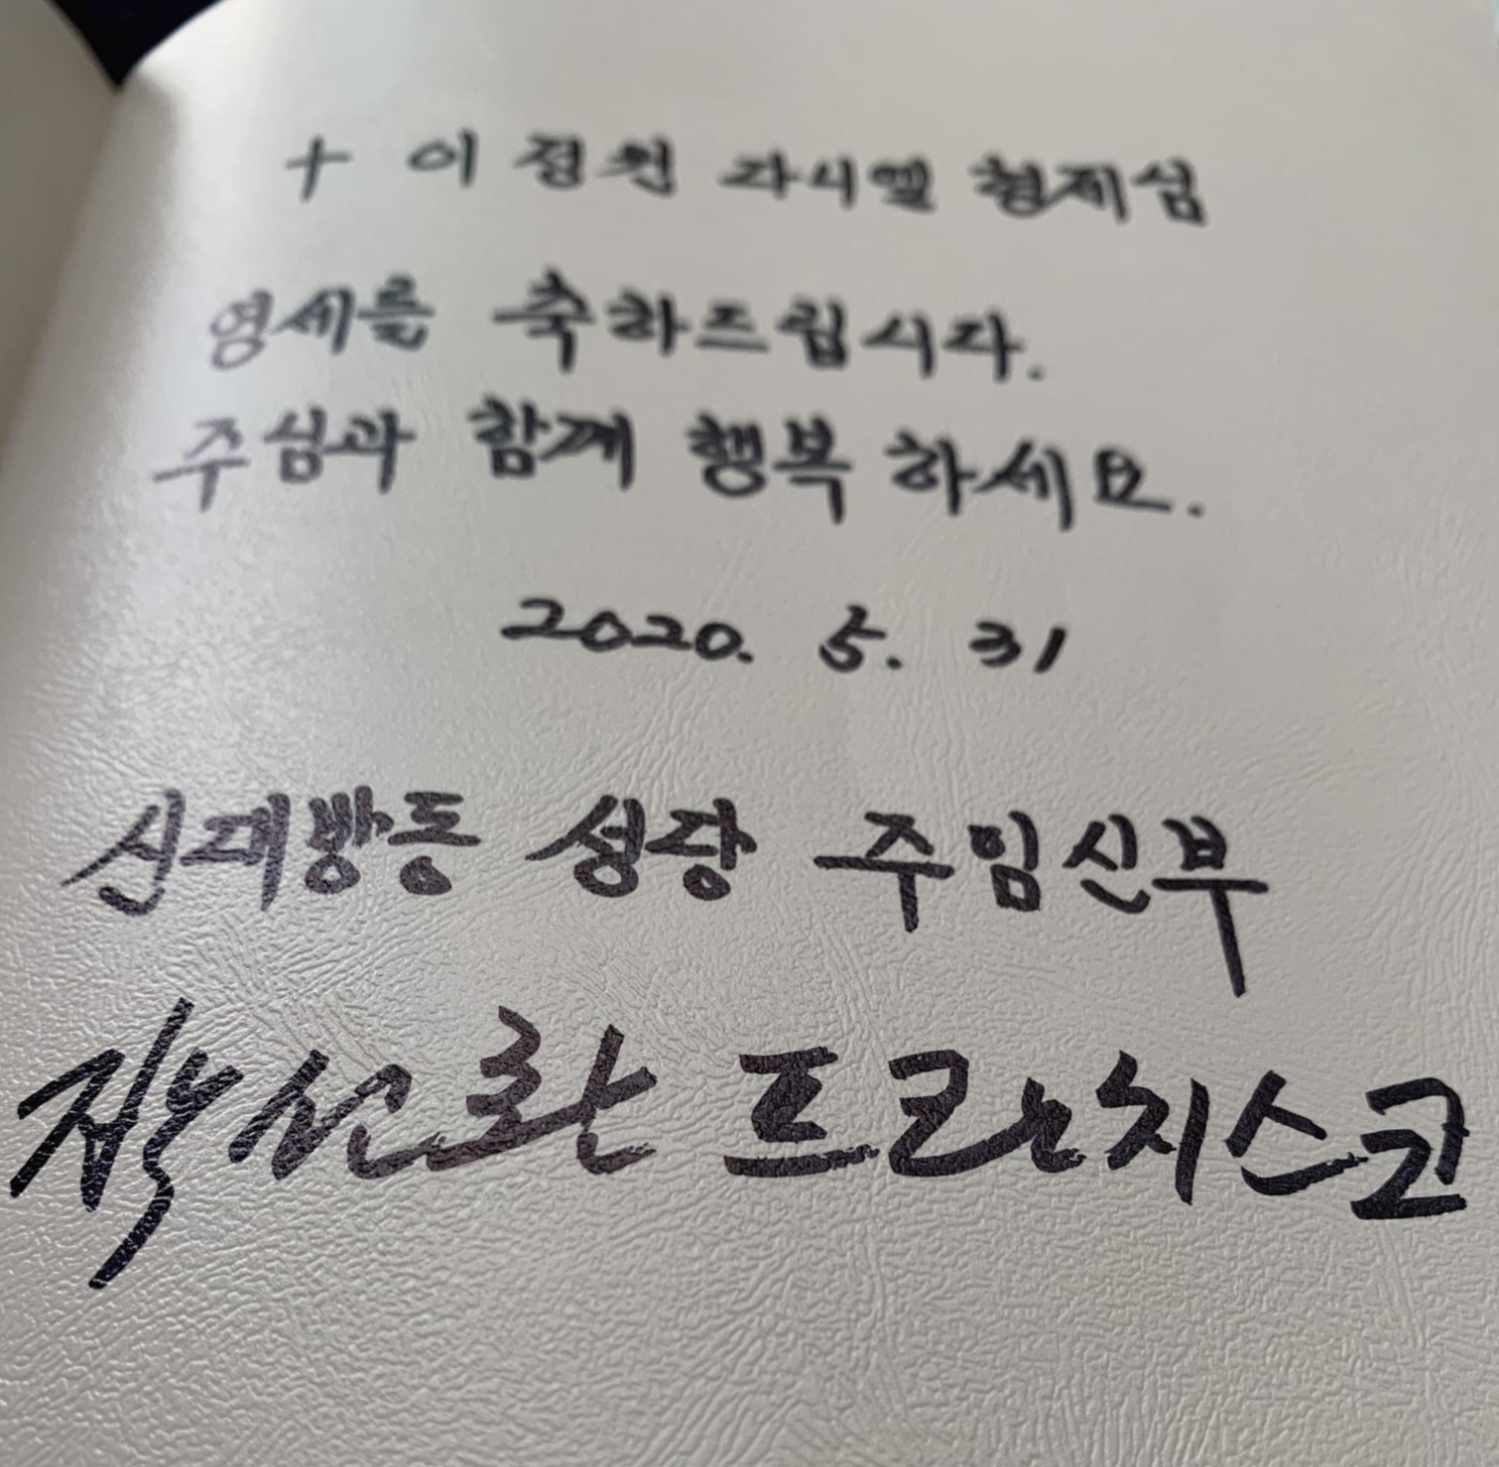 + 이정원 다니엘 형제님
영세를 축하드립니다.
주님과 함께 행복하세요.
2020. 5. 31
신대방동 성당 주임신부
프란치스코